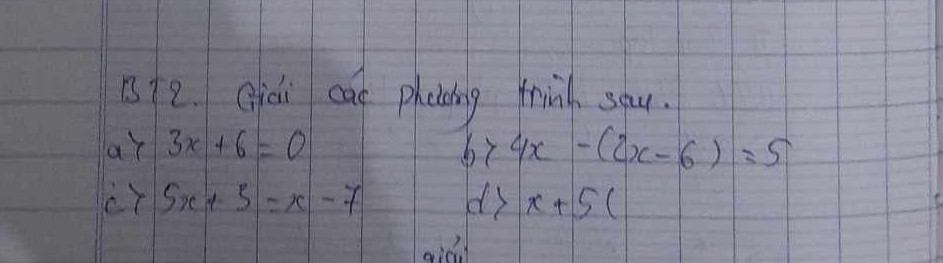 BT2. Giải các phương trình sau.
a> 3x + 6 = 0 b> 4x - (2x - 6) = 5
c> 5x + 3 = x - 7 d> x + 5 (
giải